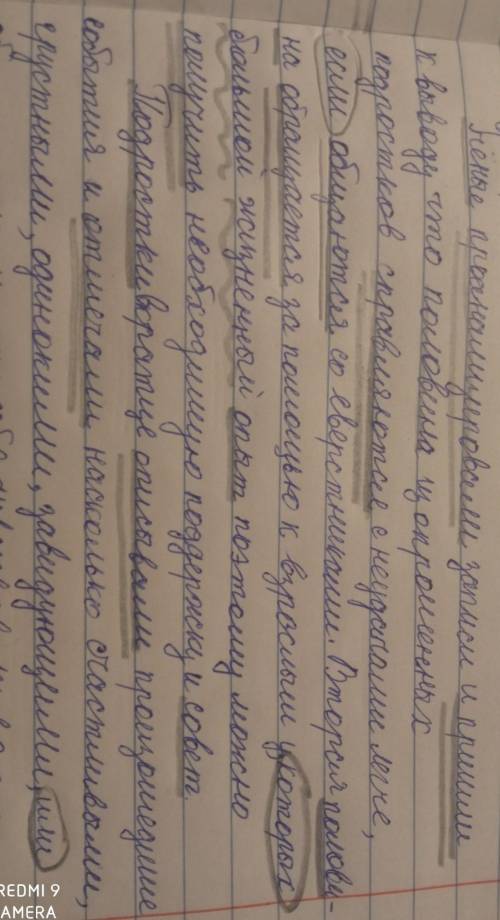 Учёные проанализировали записи и пришли
к выводу, что половина из опрошенных
подростков справляются с неудачами легче,
если общаются со сверстниками. Вторая полови-
на обращается за помощью к взрослым у которых
большой жизненный опыт поэтому можно
получить необходимую поддержку и совет.
Подростки вкратце описывали произошедшие
события и отмечали насколько счастливыми,
грустными, одинокими, завидующими, или
REDMI 9
CAMERA